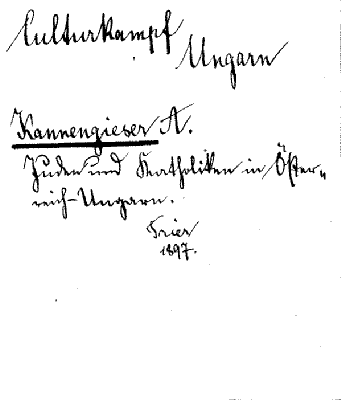 Culturkampf
Ungarn
Kannengieser A.
Juden und Katholiken in Öster„
reich-Ungarn.
Trier
1897.